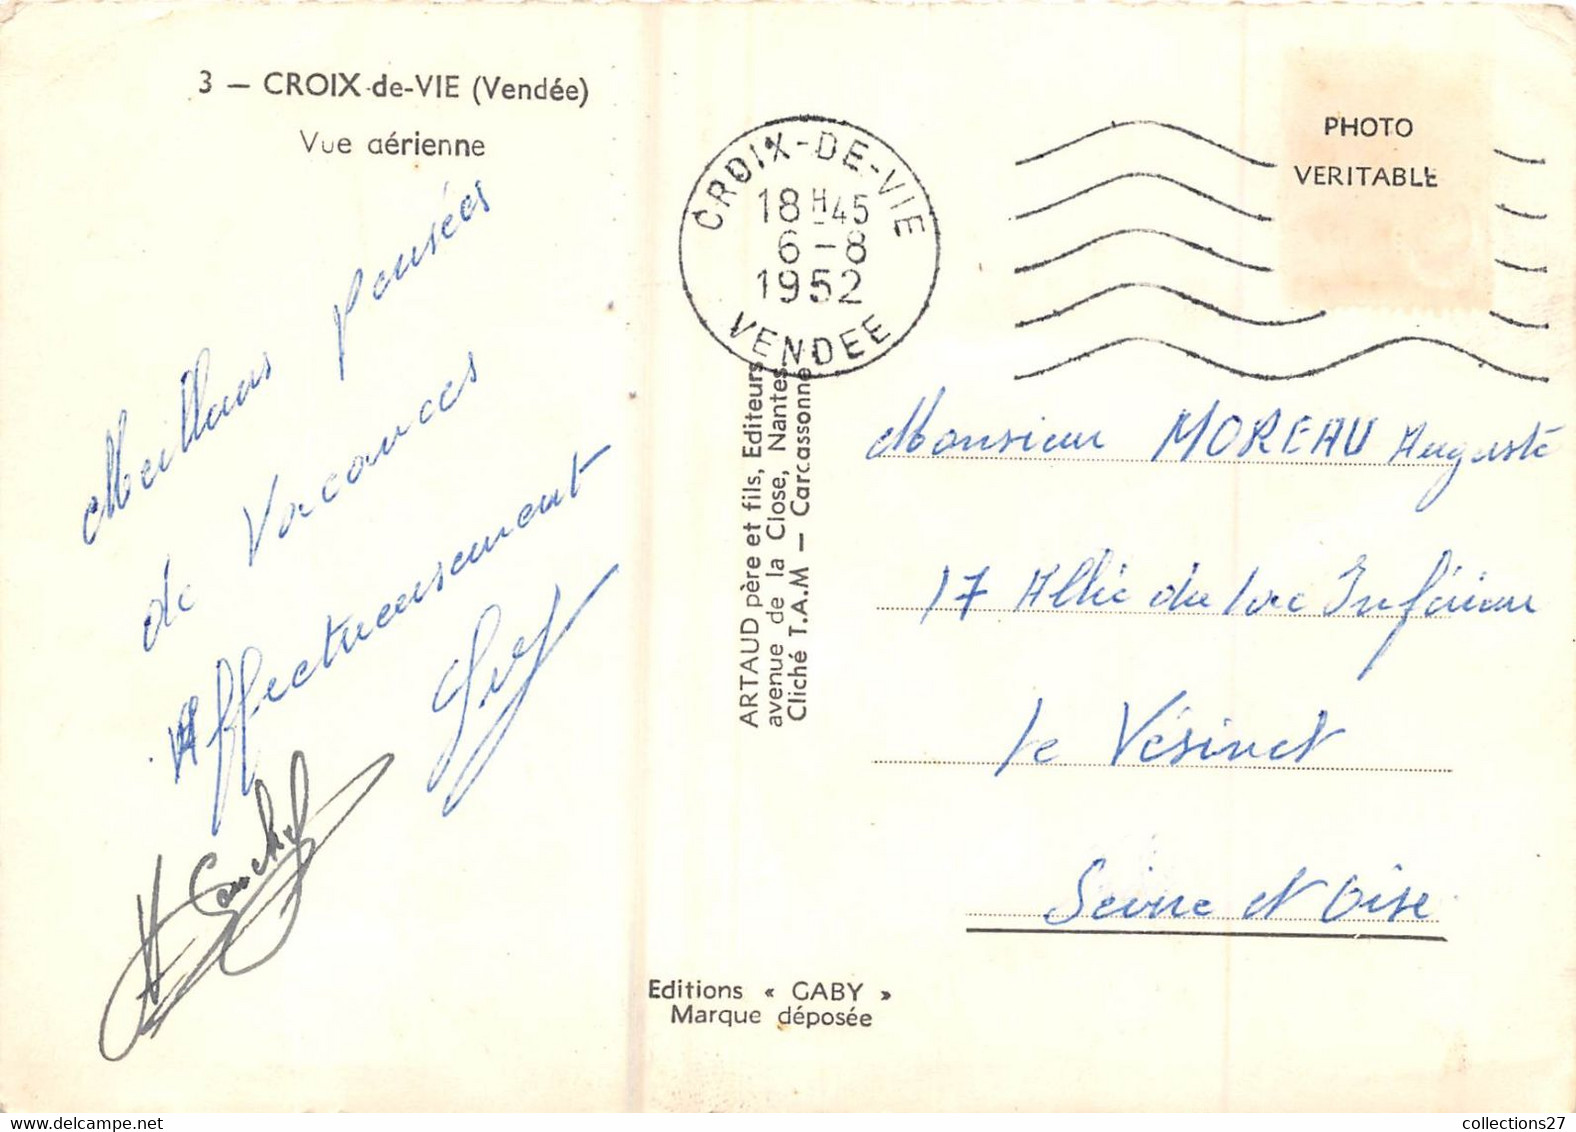 3 — CROIX-de-VIE (Vendée)
Vue aérienne
Meilleurs pensées
de Vacances
Affectueusement
Guy
CROIX-DE-VIE
18H45
6-8
1952
VENDEE
PHOTO
VERITABLE
ARTAUD père et fils, Editeurs
avenue de la Close, Nantes.
Cliché T.A.M — Carcassonne
Monsieur MOREAU Auguste
17 Allée du lac Inférieur
le Vésinet
Seine et Oise
Editions « GABY »
Marque déposée
collections27